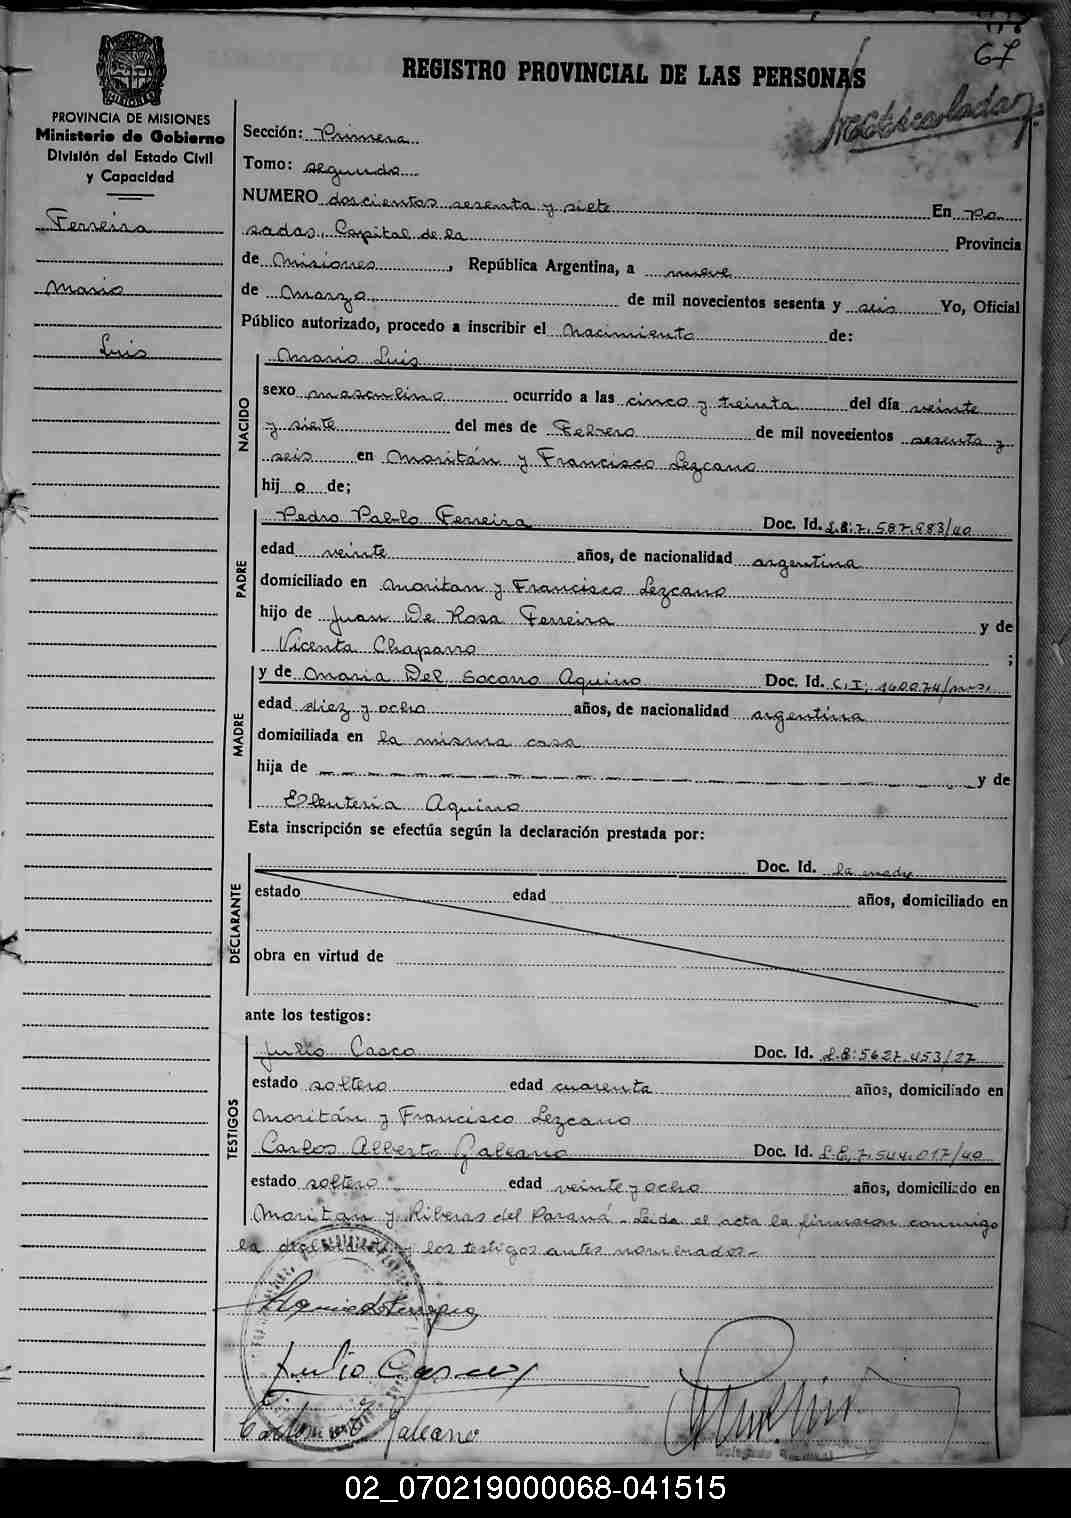 67
REGISTRO PROVINCIAL DE LAS PERSONAS
PROVINCIA DE MISIONES
Ministerio de Gobierno
División del Estado Civil
y Capacidad
Ferreira
Mario
Luis
Sección: Primera
Tomo: segundo
NUMERO doscientos sesenta y siete En Po
sadas, Capital de la Provincia
de Misiones, República Argentina, a nueve
de Marzo de mil novecientos sesenta y seis Yo, Oficial
Público autorizado, procedo a inscribir el Nacimiento de:
NACIDO
Mario Luis
sexo masculino ocurrido a las cinco y treinta del día veinte
y siete del mes de Febrero de mil novecientos sesenta y
seis en Moritán y Francisco Lezcano
hij o de;
PADRE
Pedro Pablo Ferreira Doc. Id. L.E: 7.587.983/40
edad veinte años, de nacionalidad argentina
domiciliado en Moritan y Francisco Lezcano
hijo de Juan De Rosa Ferreira y de
Vicenta Chaparro ;
MADRE
y de Maria Del Socorro Aquino Doc. Id. C.I: 160074
edad diez y ocho años, de nacionalidad argentina
domiciliada en la misma casa
hija de y de
Eleuteria Aquino
Esta inscripción se efectúa según la declaración prestada por:
DECLARANTE
Doc. Id. la madre
estado edad años, domiciliado en
obra en virtud de
ante los testigos:
TESTIGOS
Julio Casco Doc. Id. L.E: 5627.453/27
estado soltero edad cuarenta años, domiciliado en
Moritán y Francisco Lezcano
Carlos Alberto Galeano Doc. Id. L.E. 7.544.017/40
estado soltero edad veinte y ocho años, domiciliado en
Moritan y Riberas del Paraná - Leida el acta la firmaron conmigo
la y los testigos antes nombrados.-
Julio Casco
Galeano
02_070219000068-041515